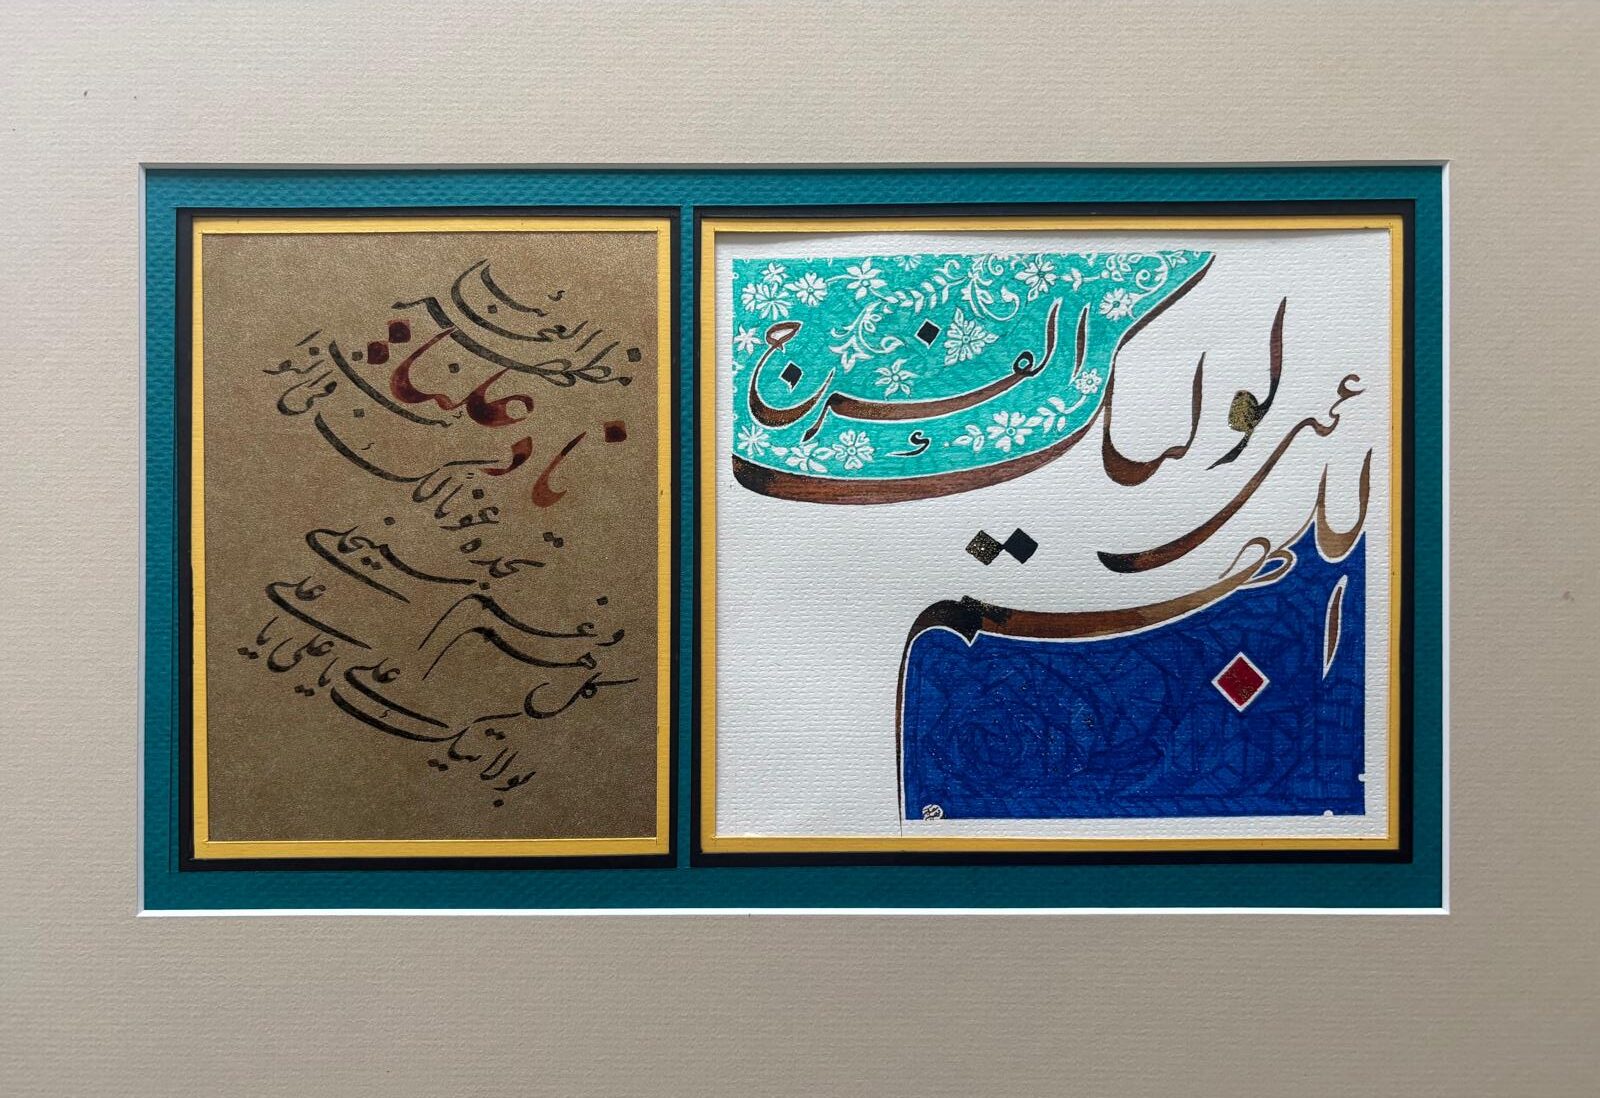 اللهم عجل
لولیک الفرج
ناد علیاً
مظهر العجائب
تجده عوناً لک فی النوائب
کل هم و غم سینجلی
بولایتک یا علی یا علی یا علی